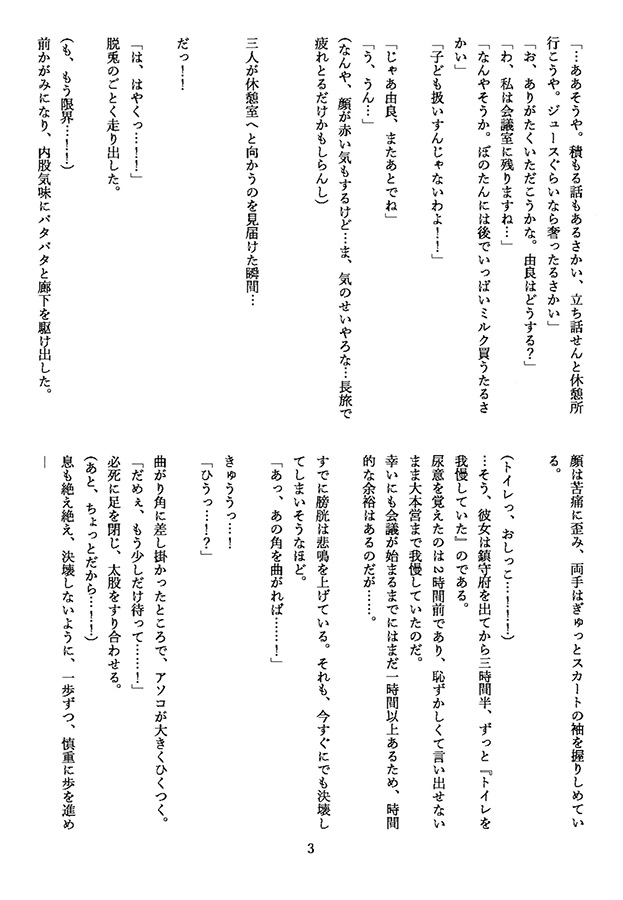 「…ああそうや。積もる話もあるさかい、立ち話せんと休憩所
行こうや。ジュースぐらいなら奢ったるさかい」
「お、ありがたくいただこうかな。由良はどうする？」
「わ、私は会議室に残りますね…」
「なんやそうか。ぼのたんには後でいっぱいミルク買うたるさ
かい」
「子ども扱いすんじゃないわよ！！」
「じゃあ由良、またあとでね」
「う、うん…」
(なんや、顔が赤い気もするけど…ま、気のせいやろな…長旅で
疲れとるだけかもしらんし)
三人が休憩室へと向かうのを見届けた瞬間…
だっ！！
「は、はやくっ…！！」
脱兎のごとく走り出した。
(も、もう限界…！！)
前かがみになり、内股気味にバタバタと廊下を駆け出した。
顔は苦痛に歪み、両手はぎゅっとスカートの袖を握りしめてい
る。
(トイレっ、おしっこ…！！)
…そう、彼女は鎮守府を出てから三時間半、ずっと『トイレを
我慢していた』のである。
尿意を覚えたのは2時間前であり、恥ずかしくて言い出せない
まま大本営まで我慢していたのだ。
幸いにも会議が始まるまでにはまだ一時間以上あるため、時間
的な余裕はあるのだが……。
すでに膀胱は悲鳴を上げている。それも、今すぐにでも決壊し
てしまいそうなほど。
「あっ、あの角を曲がれば……！」
きゅううっ…！
「ひうっ…！？」
曲がり角に差し掛かったところで、アソコが大きくひくつく。
「だめぇ、もう少しだけ待って……！」
必死に足を閉じ、太股をすり合わせる。
(あと、ちょっとだから…！！)
息も絶え絶え、決壊しないように、一歩ずつ、慎重に歩を進め
―
3